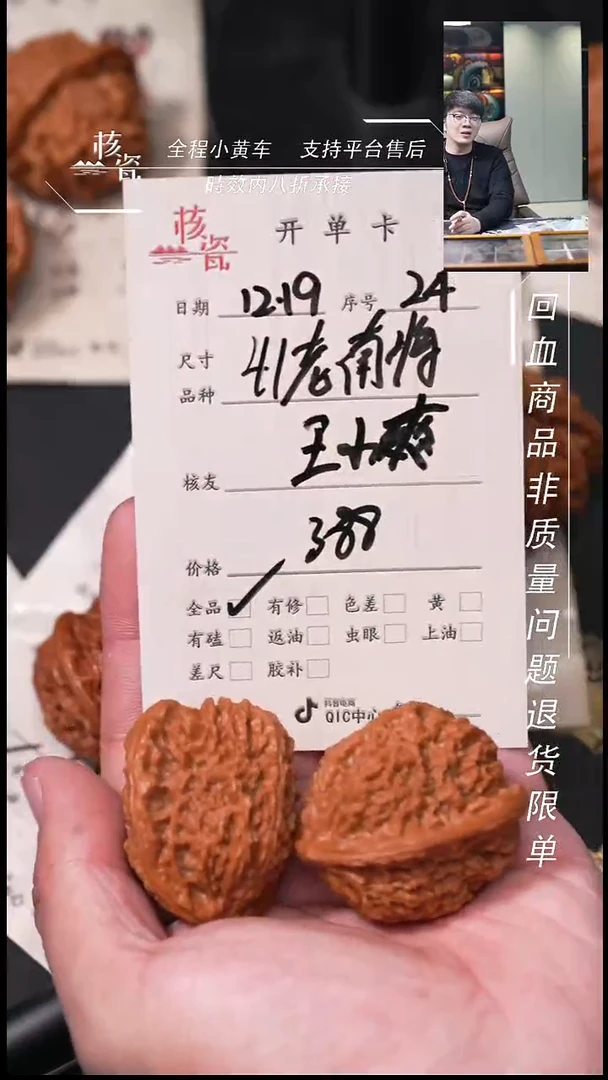 核瓷
全程小黄车 支持平台售后
时效内八折承接
核瓷
开单卡
日期 12.19 序号 24
尺寸
品种 41老南将
核友 王小爽
价格 388
全品 ✓ 有修 色差 黄
有磕 返油 虫眼 上油
差尺 胶补
抖音电商
QIC中心
回血商品非质量问题退货限单